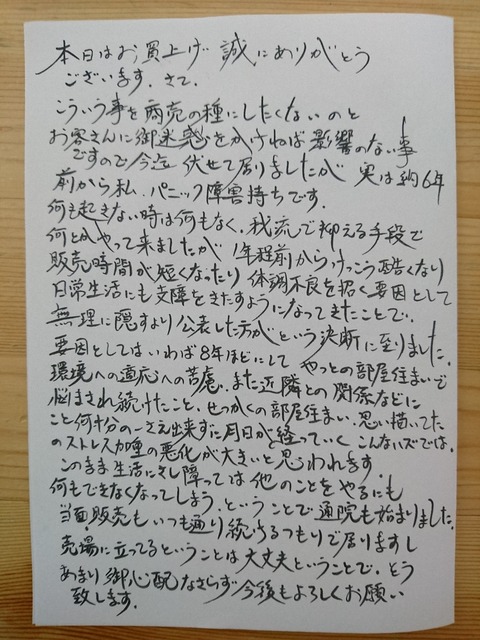 本日はお買上げ 誠にありがとう
ございます。さて、
こういう事を商売の種にしたくないのと
お客さんに御迷惑をかけねば影響のない事
ですので今迄 伏せて居りましたが 実は約6年
前から私、パニック障害持ちです。
何も起きない時は何もなく、我流で抑える手段で
何とかやって来ましたが 1年程前からけっこう酷くなり
販売時間が短くなったり 体調不良を招く要因として
日常生活にも支障をきたすようになってきたことで、
無理に隠すより 公表した方がという決断に至りました。
要因としてはいわば8年ほどにして やっとの部屋住まいで
環境への適応への苦慮、また近隣との関係などに
悩まされ続けたこと、せっかくの部屋住まい、思い描いてた
こと何十分の一さえ出来ずに月日が経っていく こんなハズでは、
のストレス加重の悪化が大きいと思われます。
このまま生活にさし障っては 他のことをやるにも
何もできなくなってしまう、ということで 通院も始まりました。
当面、販売も いつも通り 続けるつもりで居りますし
売場に立ってるということは 大丈夫ということで、どう
あまり御心配なさらず 今後もよろしくお願い
致します。